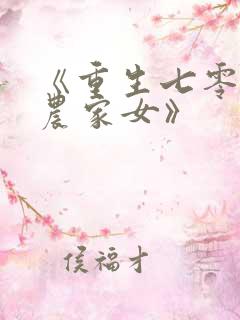 《重生七零
农家女》
侯福才